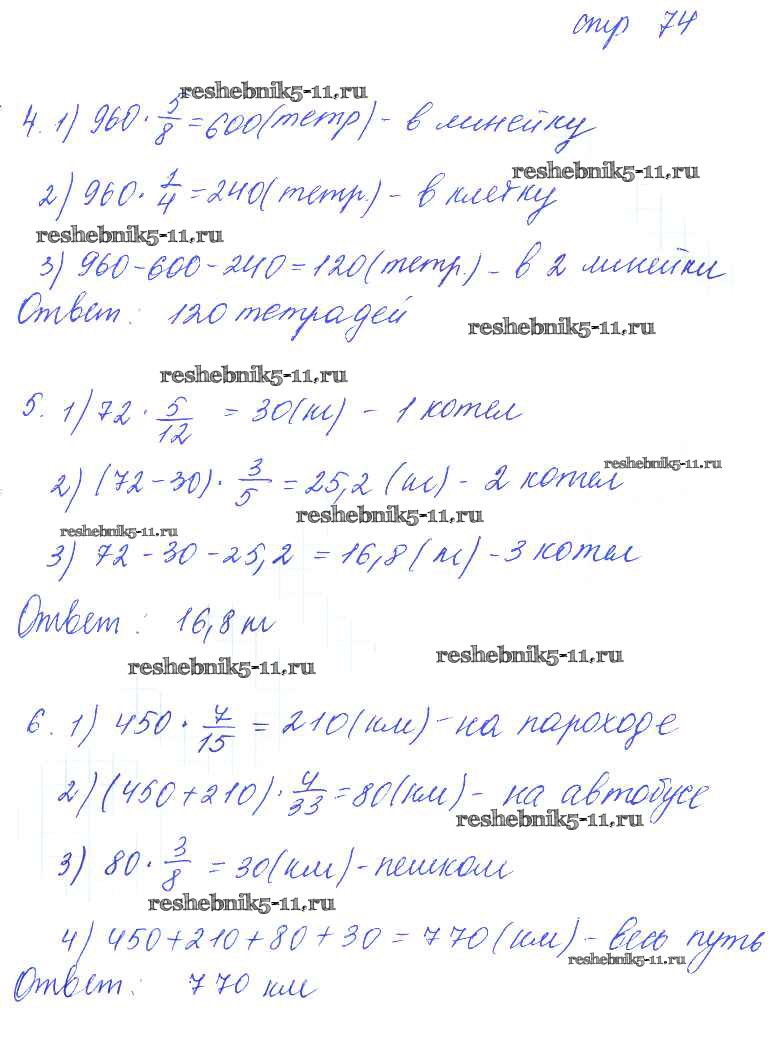 стр 74
reshebnik5-11.ru
4. 1) 960 · 5/8 = 600 (тетр) - в линейку
reshebnik5-11.ru
2) 960 · 1/4 = 240 (тетр.) - в клетку
reshebnik5-11.ru
3) 960 - 600 - 240 = 120 (тетр.) - в 2 линейки
Ответ: 120 тетрадей
reshebnik5-11.ru
reshebnik5-11.ru
5. 1) 72 · 5/12 = 30 (т) - 1 котел
reshebnik5-11.ru
2) (72 - 30) · 3/5 = 25,2 (т) - 2 котел
reshebnik5-11.ru
reshebnik5-11.ru
3) 72 - 30 - 25,2 = 16,8 (т) - 3 котел
Ответ: 16,8 т
reshebnik5-11.ru
reshebnik5-11.ru
6. 1) 450 · 7/15 = 210 (км) - на пароходе
2) (450 + 210) · 4/33 = 80 (км) - на автобусе
reshebnik5-11.ru
3) 80 · 3/8 = 30 (км) - пешком
reshebnik5-11.ru
4) 450 + 210 + 80 + 30 = 770 (км) - весь путь
reshebnik5-11.ru
Ответ: 770 км